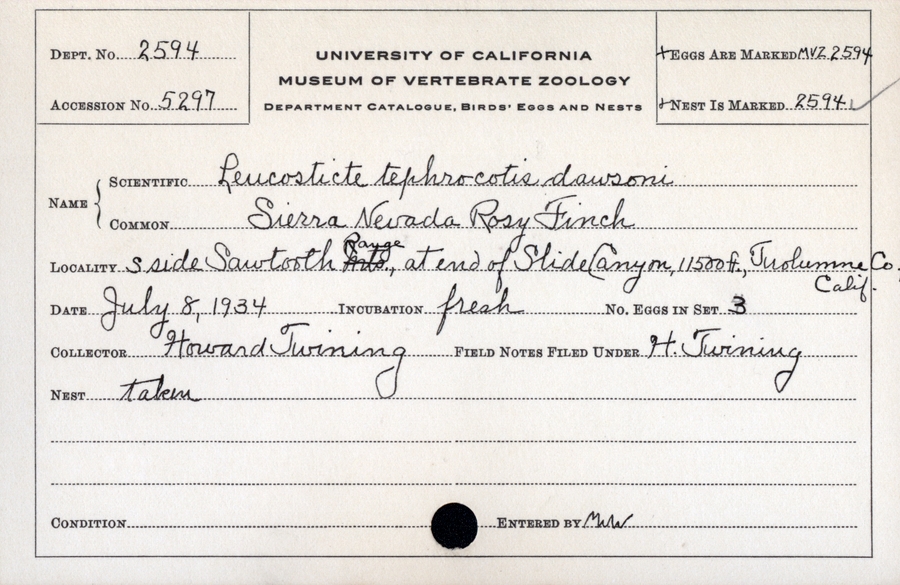 DEPT. No. 2594
UNIVERSITY OF CALIFORNIA
MUSEUM OF VERTEBRATE ZOOLOGY
DEPARTMENT CATALOGUE, BIRDS' EGGS AND NESTS
ACCESSION No. 5297
+EGGS ARE MARKED MVZ 2594
+NEST IS MARKED 2594
NAME
SCIENTIFIC Leucosticte tephrocotis dawsoni
COMMON Sierra Nevada Rosy Finch
LOCALITY S side Sawtooth Range, at end of Slide Canyon, 11500 ft., Tuolumne Co.
Calif.
DATE July 8, 1934 INCUBATION fresh No. EGGS IN SET 3
COLLECTOR Howard Twining FIELD NOTES FILED UNDER H. Twining
NEST taken
CONDITION ENTERED BY MWW